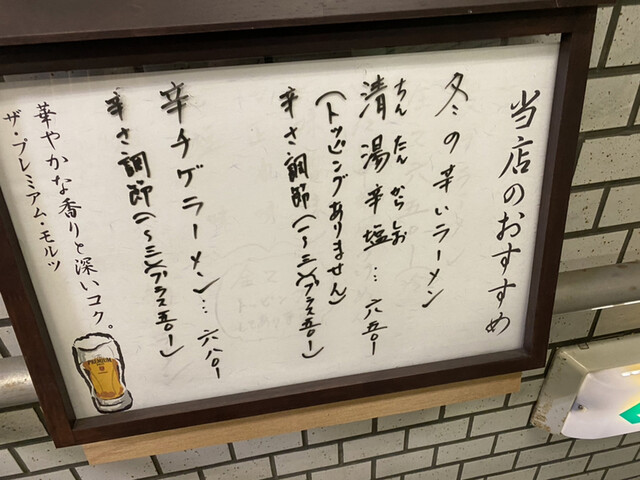 当店のおすすめ
冬の辛いラーメン
ちんたんからしお
清湯辛塩…六五〇ー
(トッピングありません)
辛さ調節(一〜三)プラス五〇ー)
辛チゲラーメン…六八〇ー
辛さ調節(一〜三)プラス五〇ー)
華やかな香りと深いコク。
ザ・プレミアム・モルツ
PREMIUM